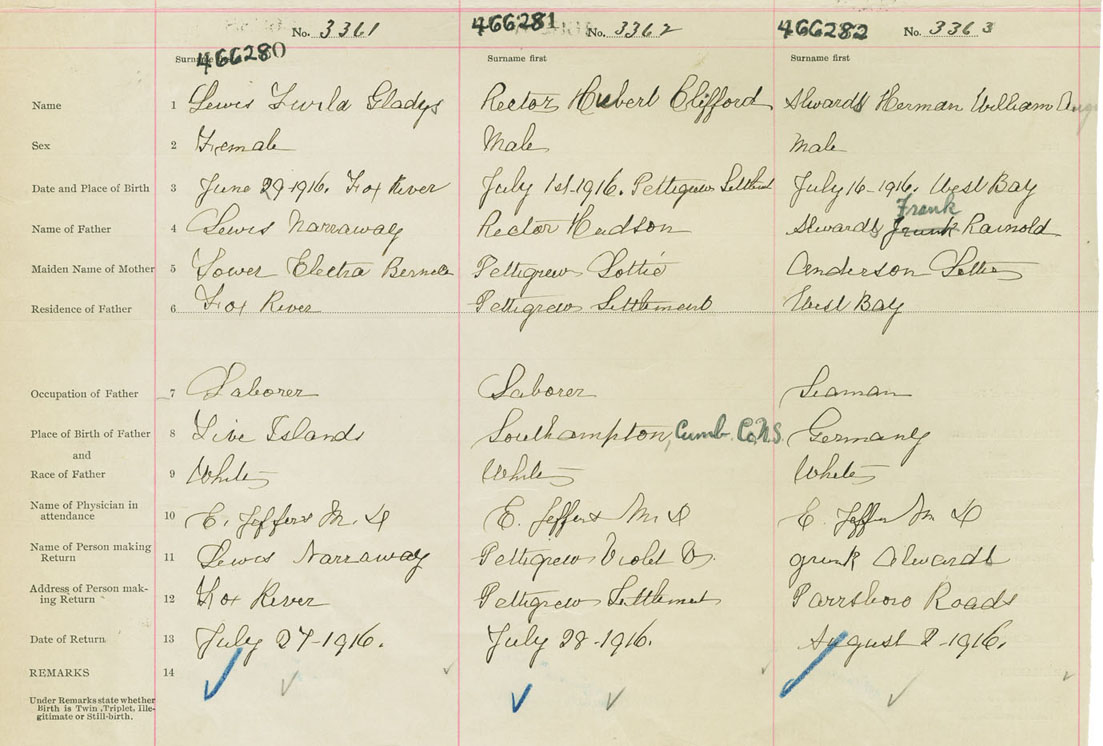 No. 3361 466281 No. 3362 466282 No. 3363
466280
Surname first Surname first
Name 1 Lewis Twila Gladys Rector Hubert Clifford Alwards Herman William
Sex 2 Female Male Male
Date and Place of Birth 3 June 29-1916. Fox River July 1st-1916. Pettigrew Settlement July 16-1916. West Bay
Frank
Name of Father 4 Lewis Narraway Rector Hudson Alwards Rainold
Maiden Name of Mother 5 Tower Electra Bernece Pettigrew Lottie Anderson Lottie
Residence of Father 6 Fox River Pettigrew Settlement West Bay
Occupation of Father 7 Laborer Laborer Seaman
Place of Birth of Father 8 Five Islands Southampton, Cumb. Co, N.S. Germany
and
Race of Father 9 White White White
Name of Physician in
attendance 10 E. Jeffers M. D E. Jeffers M D E. Jeffers M D
Name of Person making
Return 11 Lewis Narraway Pettigrew Violet Alwards
Address of Person mak-
ing Return 12 Fox River Pettigrew Settlement Parrsboro Roads
Date of Return 13 July 27-1916. July 28-1916. August 2-1916.
REMARKS 14
Under Remarks state whether
Birth is Twin, Triplet, Ille-
gitimate or Still-birth.